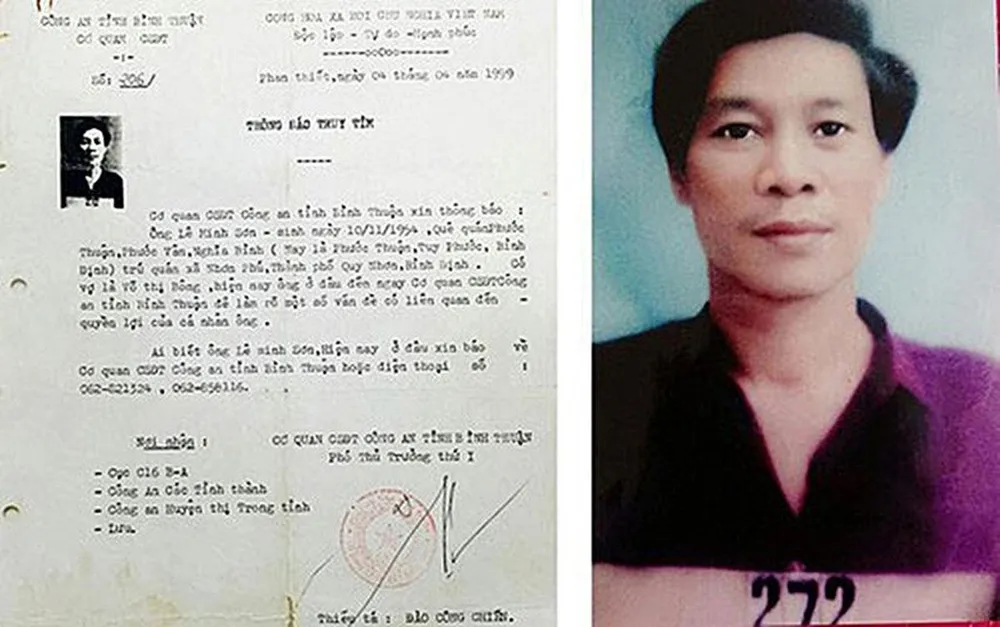 CÔNG AN TỈNH BÌNH THUẬN
CƠ QUAN CSĐT
-:-
Số: 206/
CỘNG HÒA XÃ HỘI CHỦ NGHĨA VIỆT NAM
Độc lập - Tự do -Hạnh phúc
------ooOoo------
Phan thiết,ngày 04 tháng 04 năm 1999
THÔNG BÁO TRUY TÌM
-----
Cơ quan CSĐT Công an tỉnh Bình Thuận xin thông báo :
Ông Lê Minh Sơn - sinh ngày 10/11/1954 ,Quê quánPhước
Thuận,Phước Vân,Nghĩa Bình ( Nay là Phước Thuận,Tuy Phước, Bình
Định) trú quán xã Nhơn Phú,Thành phố Quy Nhơn,Bình Định . Có
vợ là Võ thị Bông ,hiện nay ông ở đâu đến ngay Cơ quan CSĐTCông
an tỉnh Bình Thuận để làm rõ một số vấn đề có liên quan đến -
quyền lợi của cá nhân ông .
Ai biết ông Lê minh Sơn,Hiện nay ở đâu xin báo về
Cơ quan CSĐT Công an tỉnh Bình Thuận hoặc điện thoại số :
062-821324 , 062-858116.
Nơi nhận :
- Cục C16 B-A
- Công An Các Tỉnh thành
- Công an Huyện thị Trong tỉnh
- Lưu.
CƠ QUAN CSĐT CÔNG AN TỈNH BÌNH THUẬN
Phó Thủ Trưởng thứ I
Thiếu tá : ĐÀO CÔNG CHIẾN.
272